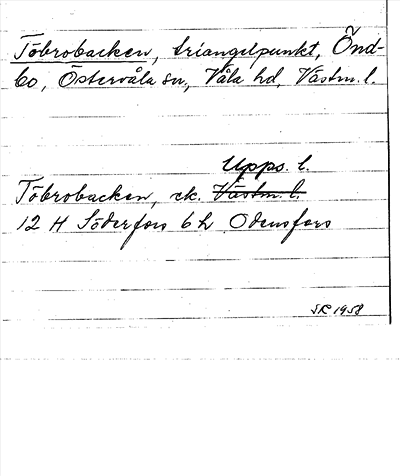 Töbrobacken, triangelpunkt, Önd-
bo, Östervåla sn, Våla hd, Västm. l.
Upps. l.
Töbrobacken, ek. Västm. l.
12 H Söderfors 6 h Odensfors
SK 1958